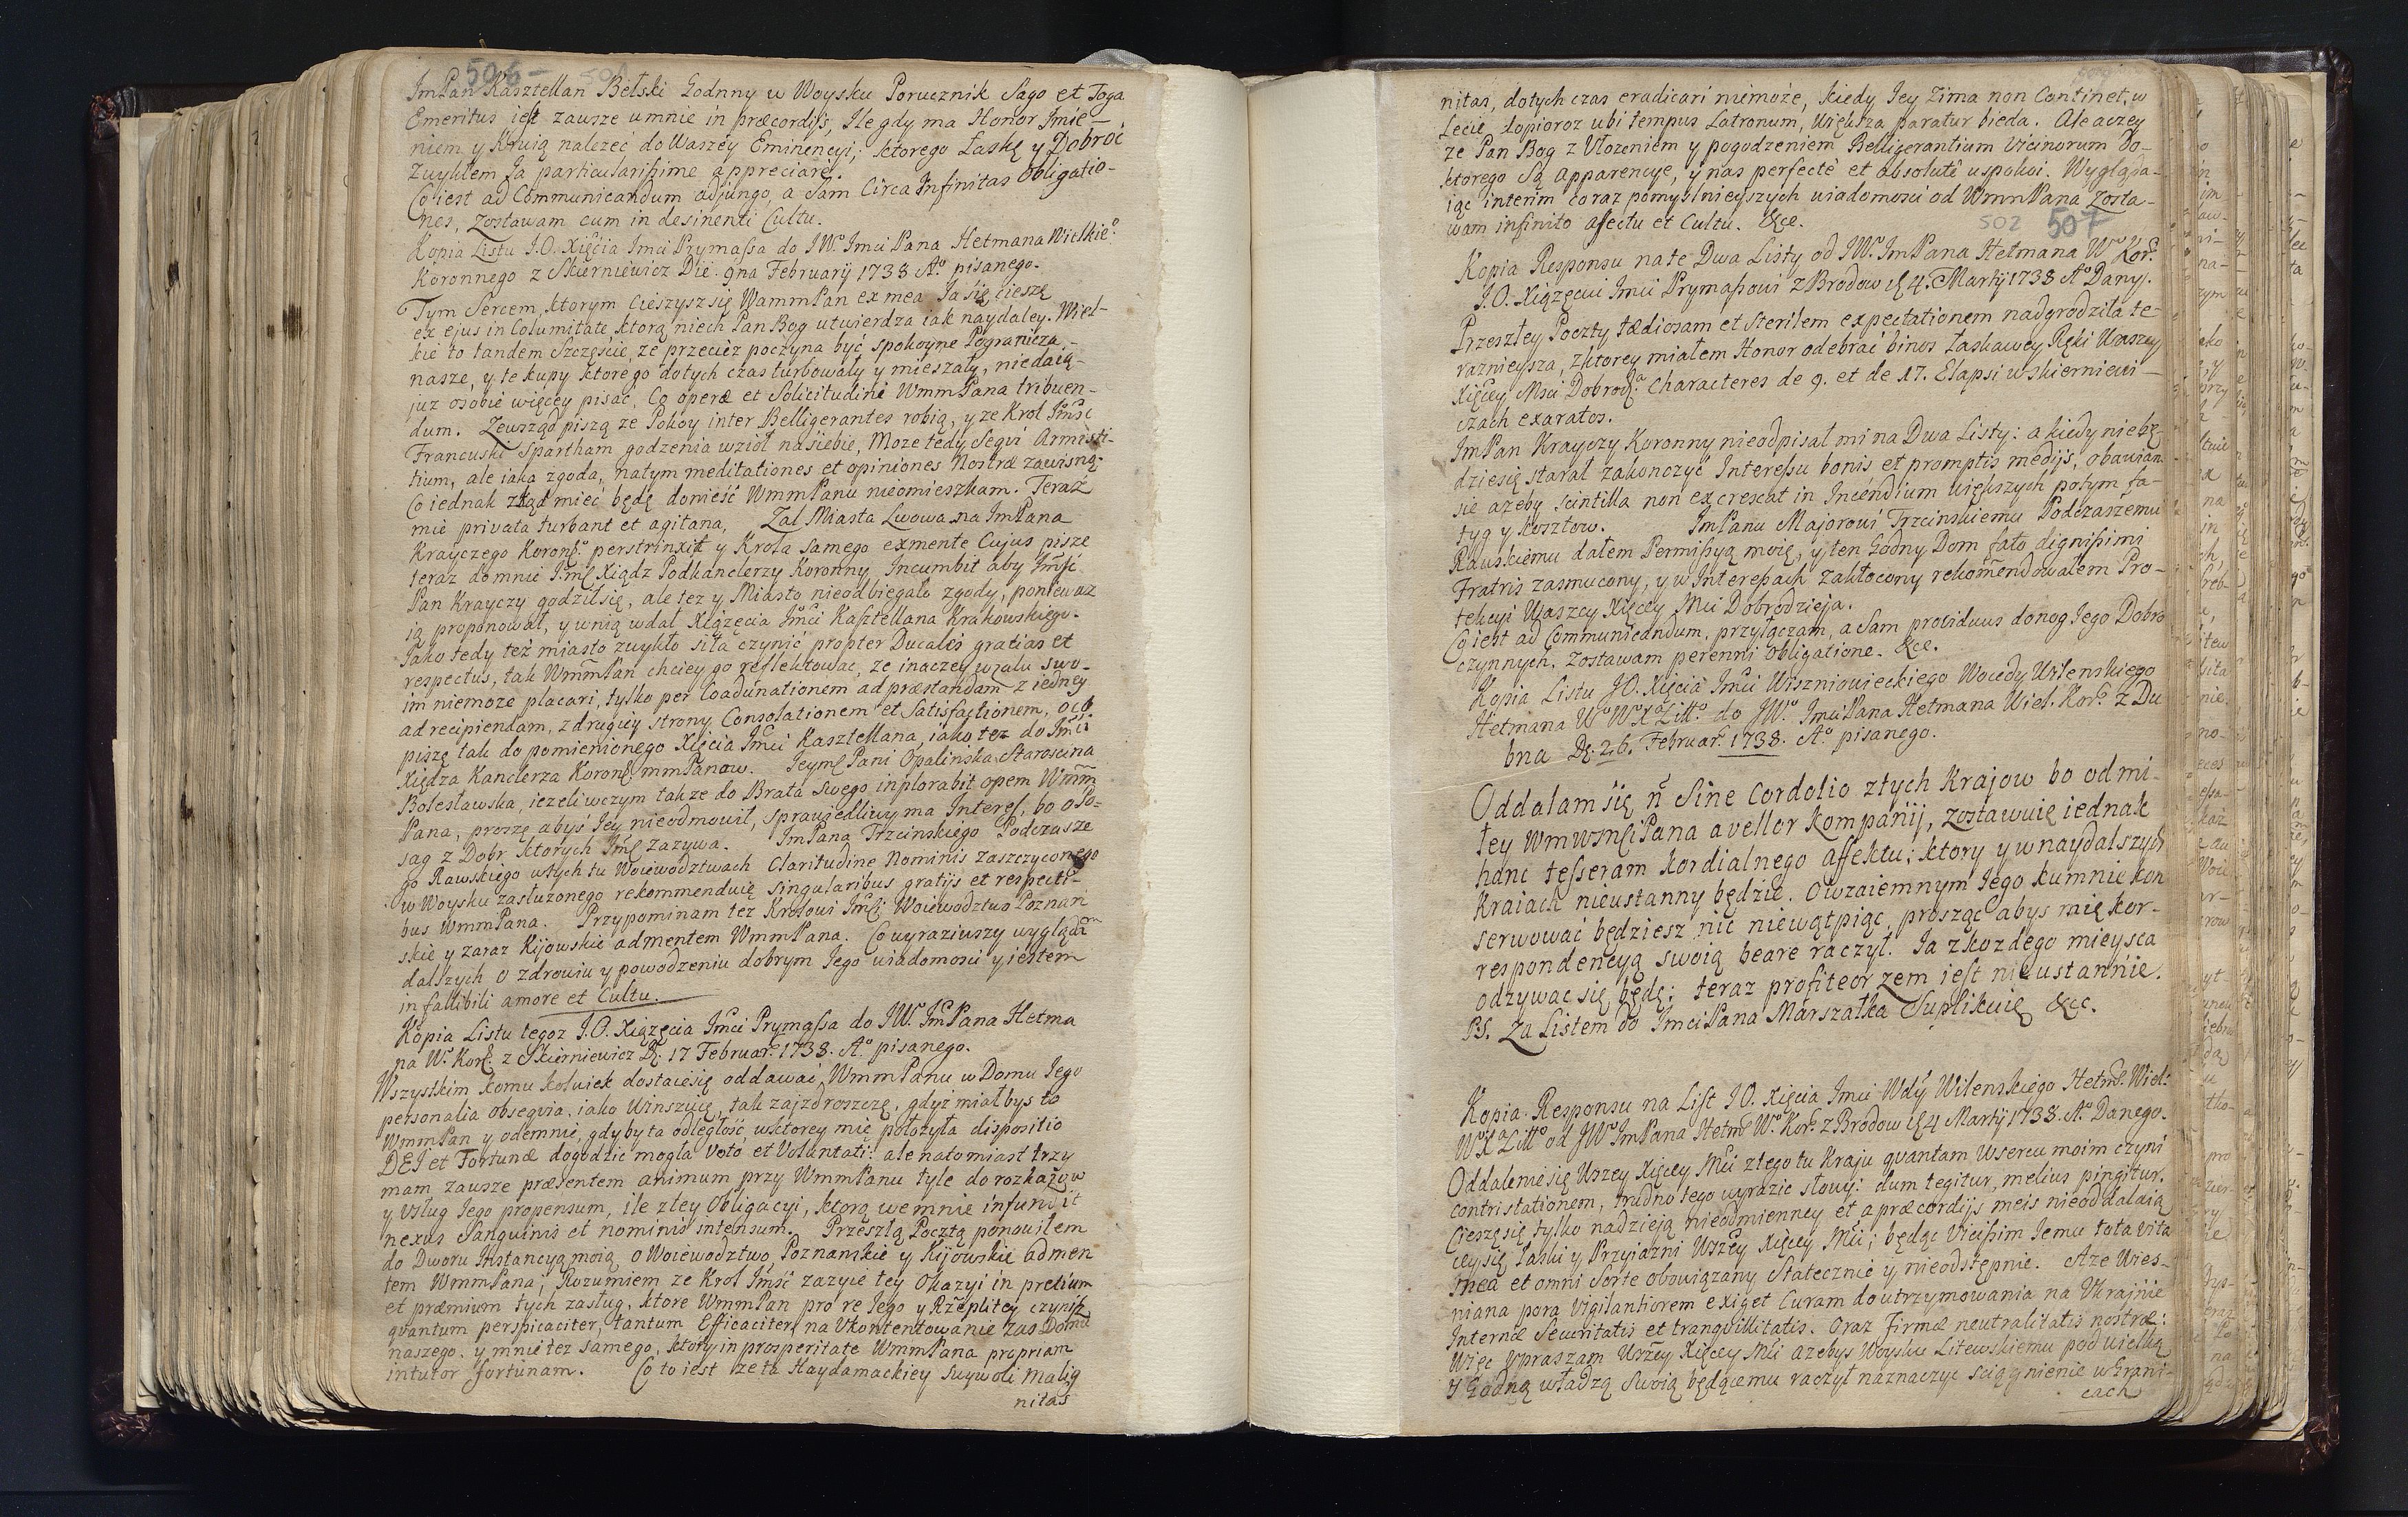 506 501
ImPan Kasztellan Bełski Godnny w Woysku Porucznik Sago et Toga
Emeritus iest zausze umnie in præcordijs, Ile gdy ma Honor Imie-
niem y Krwią nalezeć do Waszey Eminencyi; ktorego Łaskę y Dobroć
zwykłem Ja particularissime appreciare.
Co iest ad Communicandum adjungo, a Sam Circa Infinitas obligatio-
nes, zostawam cum in desinenti Cultu.
Kopia Listu J.O. Xięcia Imci Prymassa do JW. Imci Pana Hetmana Wielkieo
Koronnego z Skierniewicz Die 9na February 1738 Ao pisanego.
Tym Sercem, ktorym Cieszysz się WammPan ex mea Ja się cieszę
ex ejus in Columitate ktorą niech Pan Bog utwierdza iak naydaley. Wiel-
kie to tandem Szczęście, ze przecież poczyna być spokoyne Pogranicza
nasze, y te kupy ktore go dotych czas turbowały y mieszały, niedaią
juz osobie więcey pisac, Co operæ et Solicitudini WmmPana tribuen-
dum. Zewsząd piszą ze Pokoy inter Belligerantes robią, y ze Krol Imść
Francuski Spartham godzenia wziół nasiebie, Moze tedy Segvi Armisti-
tium, ale iaka zgoda, natym meditationes et opiniones Nostræ zawisną.
Co iednak ztąd mieć będę donieść WmmPanu nieomieszkam. Teraz
mie privata turbant et agitana, Zal Miasta Lwowa na ImPana
Krayczego Korongo perstrinxit y Krola Samego ex mente Cujus pisze
teraz do mnie Imć Xiądz Podkanclerzy Koronny Incumbit aby Imść
Pan Krayczy godził się, ale tez y Miasto nieodbiegało zgody, poniewaz
ią proponował, y wnią wdał Xiązęcia Imci Kasztellana Krakowskiego.
Jako tedy też miasto zwykło siła czynić propter Ducales gratias et
respectus, tak WmmPan chciey go reflektować, ze inaczey wzalu swo-
im niemoze placari, tylko per Coadunationem ad præstandam z iedney
ad recipiendam, z drugiey strony Consolationem et Satisfactionem, oco
piszę tak do pomienionego Xięcia Imci Kasztellana, iako tez do Imci
Xiędza Kanclerza Korong mmPanow. Jeymć Pani Opalinska Staroscina
Bolesławska, iezeli wczym takze do Brata Swego inplorabit opem Wmm
Pana, proszę abyś Jey nieodmowił, Sprawiedliwy ma Interes, bo o Po-
sag z Dobr ktorych Imć zazywa. ImPana Trzcinskiego Podczasze
go Rawskiego wtych tu Woiewodztwach Claritudine Nominis zaszczyconego
w Woysku zasłuzonego rekommenduię singularibus gratijs et respecti-
bus WmmPana. Przypominam tez Krolowi Imci Woiewodztwo Poznań
skie y zaraz Kijowskie ad mentem WmmPana. Co wyraziwszy wyglądam
dalszych o zdrowiu y powodzeniu dobrym Jego wiadomosci y iestem
in fallibili amore et Cultu.
Kopia Listu tegoz J.O. Xiązęcia Imci Prymassa do JW. ImPana Hetma
na Wo Korg. z Skierniewicz D. 17 Februar. 1738. Ao pisanego.
Wszystkim komu kolwiek dostaie się oddawać WmmPanu w Domu Jego
personalia obseqvia, iako Winszuię, tak zajzdroszczę, gdyż miał bys to
WmmPan y odemnie, gdyby ta odległość wktorey mię położyła dispositio
DEI et Fortunæ dogodzić mogła Voto et Voluntati: ale natomiast trzy
mam zausze præsentem animum przy WmmPanu tyle do rozkazow
y Usług Jego propensum, ile ztey Obligacyi, ktorą we mnie infundit
nexus Sanguinis et nominis intensum. Przeszłą Pocztą ponowiłem
do Dworu Instancyą moią o Woiewodztwo Poznanskie y Kijowskie ad men
tem WmmPana; Rozumiem ze Krol Imść zazyie tey Okazyi in pretium
et præmium tych zasług, ktore WmmPan pro re Jego y Rzeplitey czynisz
qvantum perspicaciter, tantum Efficaciter, na Ukontentowanie zas Domu
naszego, y mnie tez samego, ktory in prosperitate WmmPana propriam
intutor fortunam. Co to iest ze ta Haydamackiey Swywoli malig
nitas
nitas, dotych czas eradicari niemoże, kiedy Jey Zima non Continet, w
Lecie dopioroz ubi tempus Latronum, większa paratur bieda. Ale aczey
ze Pan Bog z Ułozeniem y pogodzeniem Belligerantium Vicinorum Do
ktorego Są apparencye, y nas perfectè et absolutè uspokoi. Wygląda-
iąc interim coraz pomyslnieyszych wiadomosci od WmmPana zosta-
wam infinito affectu et Cultu. &ce.
502 507
Kopia Responsu na te Dwa Listy od JWo ImPana Hetmana Wo Kor.
J.O. Xiązęciu Imci Prymassowi z Brodow D 4. Martij 1738 Ao Dany.
Przeszłey Poczty tædiosam et sterilem expectationem nadgrodziła te-
raznieysza, z ktorey miałem Honor odebrać binos Łaskawey Ręki Waszey
Xięcey Msci Dobrodz. Characteres de 9. et de 17. Elapsi w Skierniewi-
czach exaratos.
ImPan Krayczy Koronny nieodpisał mi na Dwa Listy: a kiedy niebę
dzie się starał zakonczyć Interessu bonis et promptis medijs, obawiam
się azeby scintilla non excrescat in Incendium większych potym fa-
tyg y Kosztow. ImPanu Majorowi Trzcinskiemu Podczaszemu
Rauskiemu dałem Permissyą moię, y ten Godny Dom fato dignissimi
Fratris zasmucony, y w Interessach zakłocony rekomendowałem Pro-
tekcyi Waszey Xięcey Mci Dobrodzieja.
Co iest ad Communicandum, przyłączam, a Sam prociduus do nog Jego Dobro
czynnych. Zostawam perenni Obligatione. &ce.
Kopia Listu JO. Xięcia Imci Wiszniowieckiego Wwdy Wilenskiego
Hetmana Wo WX Litt. do JWo Imci Pana Hetmana Wiel. Kor. z Du
bna D. 26. Februar. 1738. Ao pisanego.
Oddalam się ñ Sine Cordolio ztych Krajow bo od mi-
łey WmwmsciPana avellor Kompánij, zostawuię iednak
hanc tesseram kordialnego affektu; ktory y w naydalszych
Kraiach nieustanny będzie. O wzaiemnym Jego kumnie kon
serwować będziesz nic niewątpiąc, prosząc abys mię kor-
respondencyą swoią beare raczył. Ia z kozdego mieysca
odzywac się będę: teraz profiteor zem iest nieustannie.
PS. Za Listem do Imci Pana Marszałka Suplikuię &cc.
Kopia Responsu na List JO. Xięcia Imci Wdy Wilenskiego Hetm. Wiel.
WX Litt. od JWo ImPana Hetm. Wo Kor. z Brodow D 4 Martij 1738. Ao Danego.
Oddalenie się Wszey Xięcey Mci ztego tu Kraju qvantam Wsercu moim czyni
contristationem, trudno tego wyrazic słowy: dum tegitur, melius pingitur.
Cieszę się tylko nadzieją nieodmienney et a præcordijs meis nieoddalaią
cey się Łaski y Przyiazni Wszey Xięcey Mci; będąc Vicissim Jemu tota vita
mea et omni Sorte obowiązany Statecznie y nieodstępnie. Aze Wies-
niana pora Vigilantiorem exiget Curam do utrzymowania na Ukrajnie
Internæ Securitatis et tranqvillitatis. Oraz firmæ neutralitatis nostræ:
Więc Upraszam Wszey Xięcey Mci azebys Woysku Litewskiemu pod wielką
y Godną władzą Swoią będącemu raczył naznaczyc sciągnienie w Grani-
cach